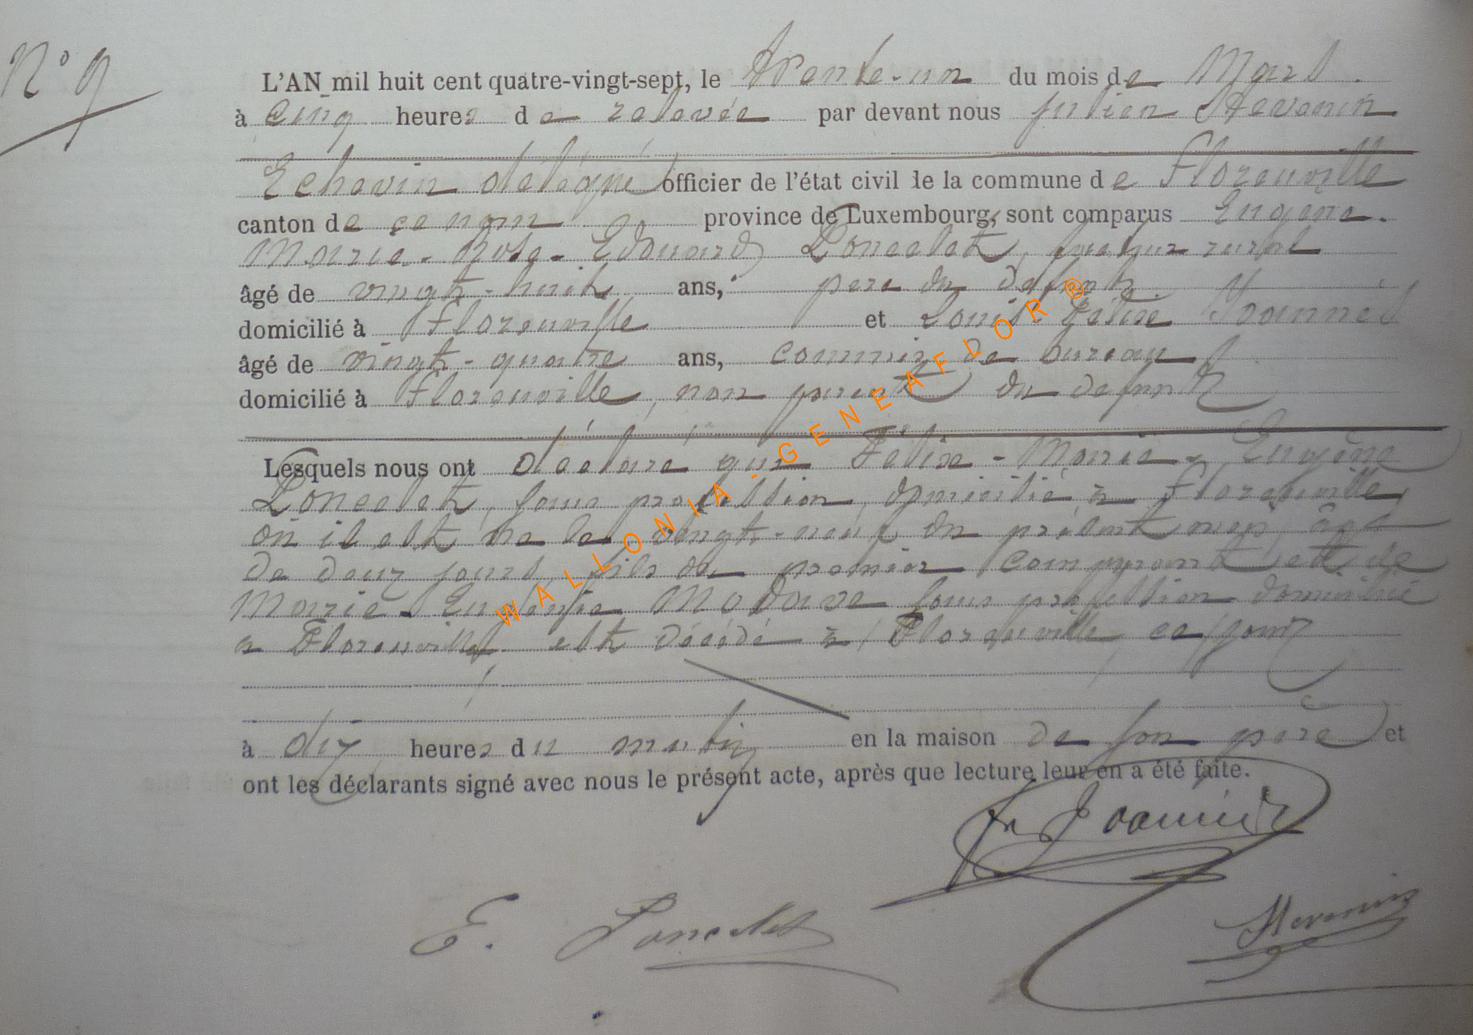 N° 9
L'AN mil huit cent quatre-vingt-sept, le trente-un du mois de Mars
à cinq heures de relevée par devant nous Julien Stevenin
Echevin délégué officier de l'état civil de la commune de Florenville
canton de ce nom province de Luxembourg, sont comparus Eugène-
Marie-Rose-Edouard Poncelet, facteur rural
âgé de vingt-huit ans, père du défunt
domicilié à Florenville et Louis-Félix Joannès
âgé de vingt-quatre ans, commis de bureau
domicilié à Florenville, non parent du défunt
Lesquels nous ont déclaré que Félix-Marie-Eugène
Poncelet, sans profession, domicilié à Florenville,
où il est né le vingt-neuf du présent mois, âgé
de deux jours, fils du premier comparant et de
Marie-Eugénie Modave sans profession domiciliée
à Florenville, est décédé à Florenville, ce jour
à dix heures du matin en la maison de son père et
ont les déclarants signé avec nous le présent acte, après que lecture leur en a été faite.
Joannès
E. Poncelet
Stevenin
WALLONIA-GENEAFDOR®